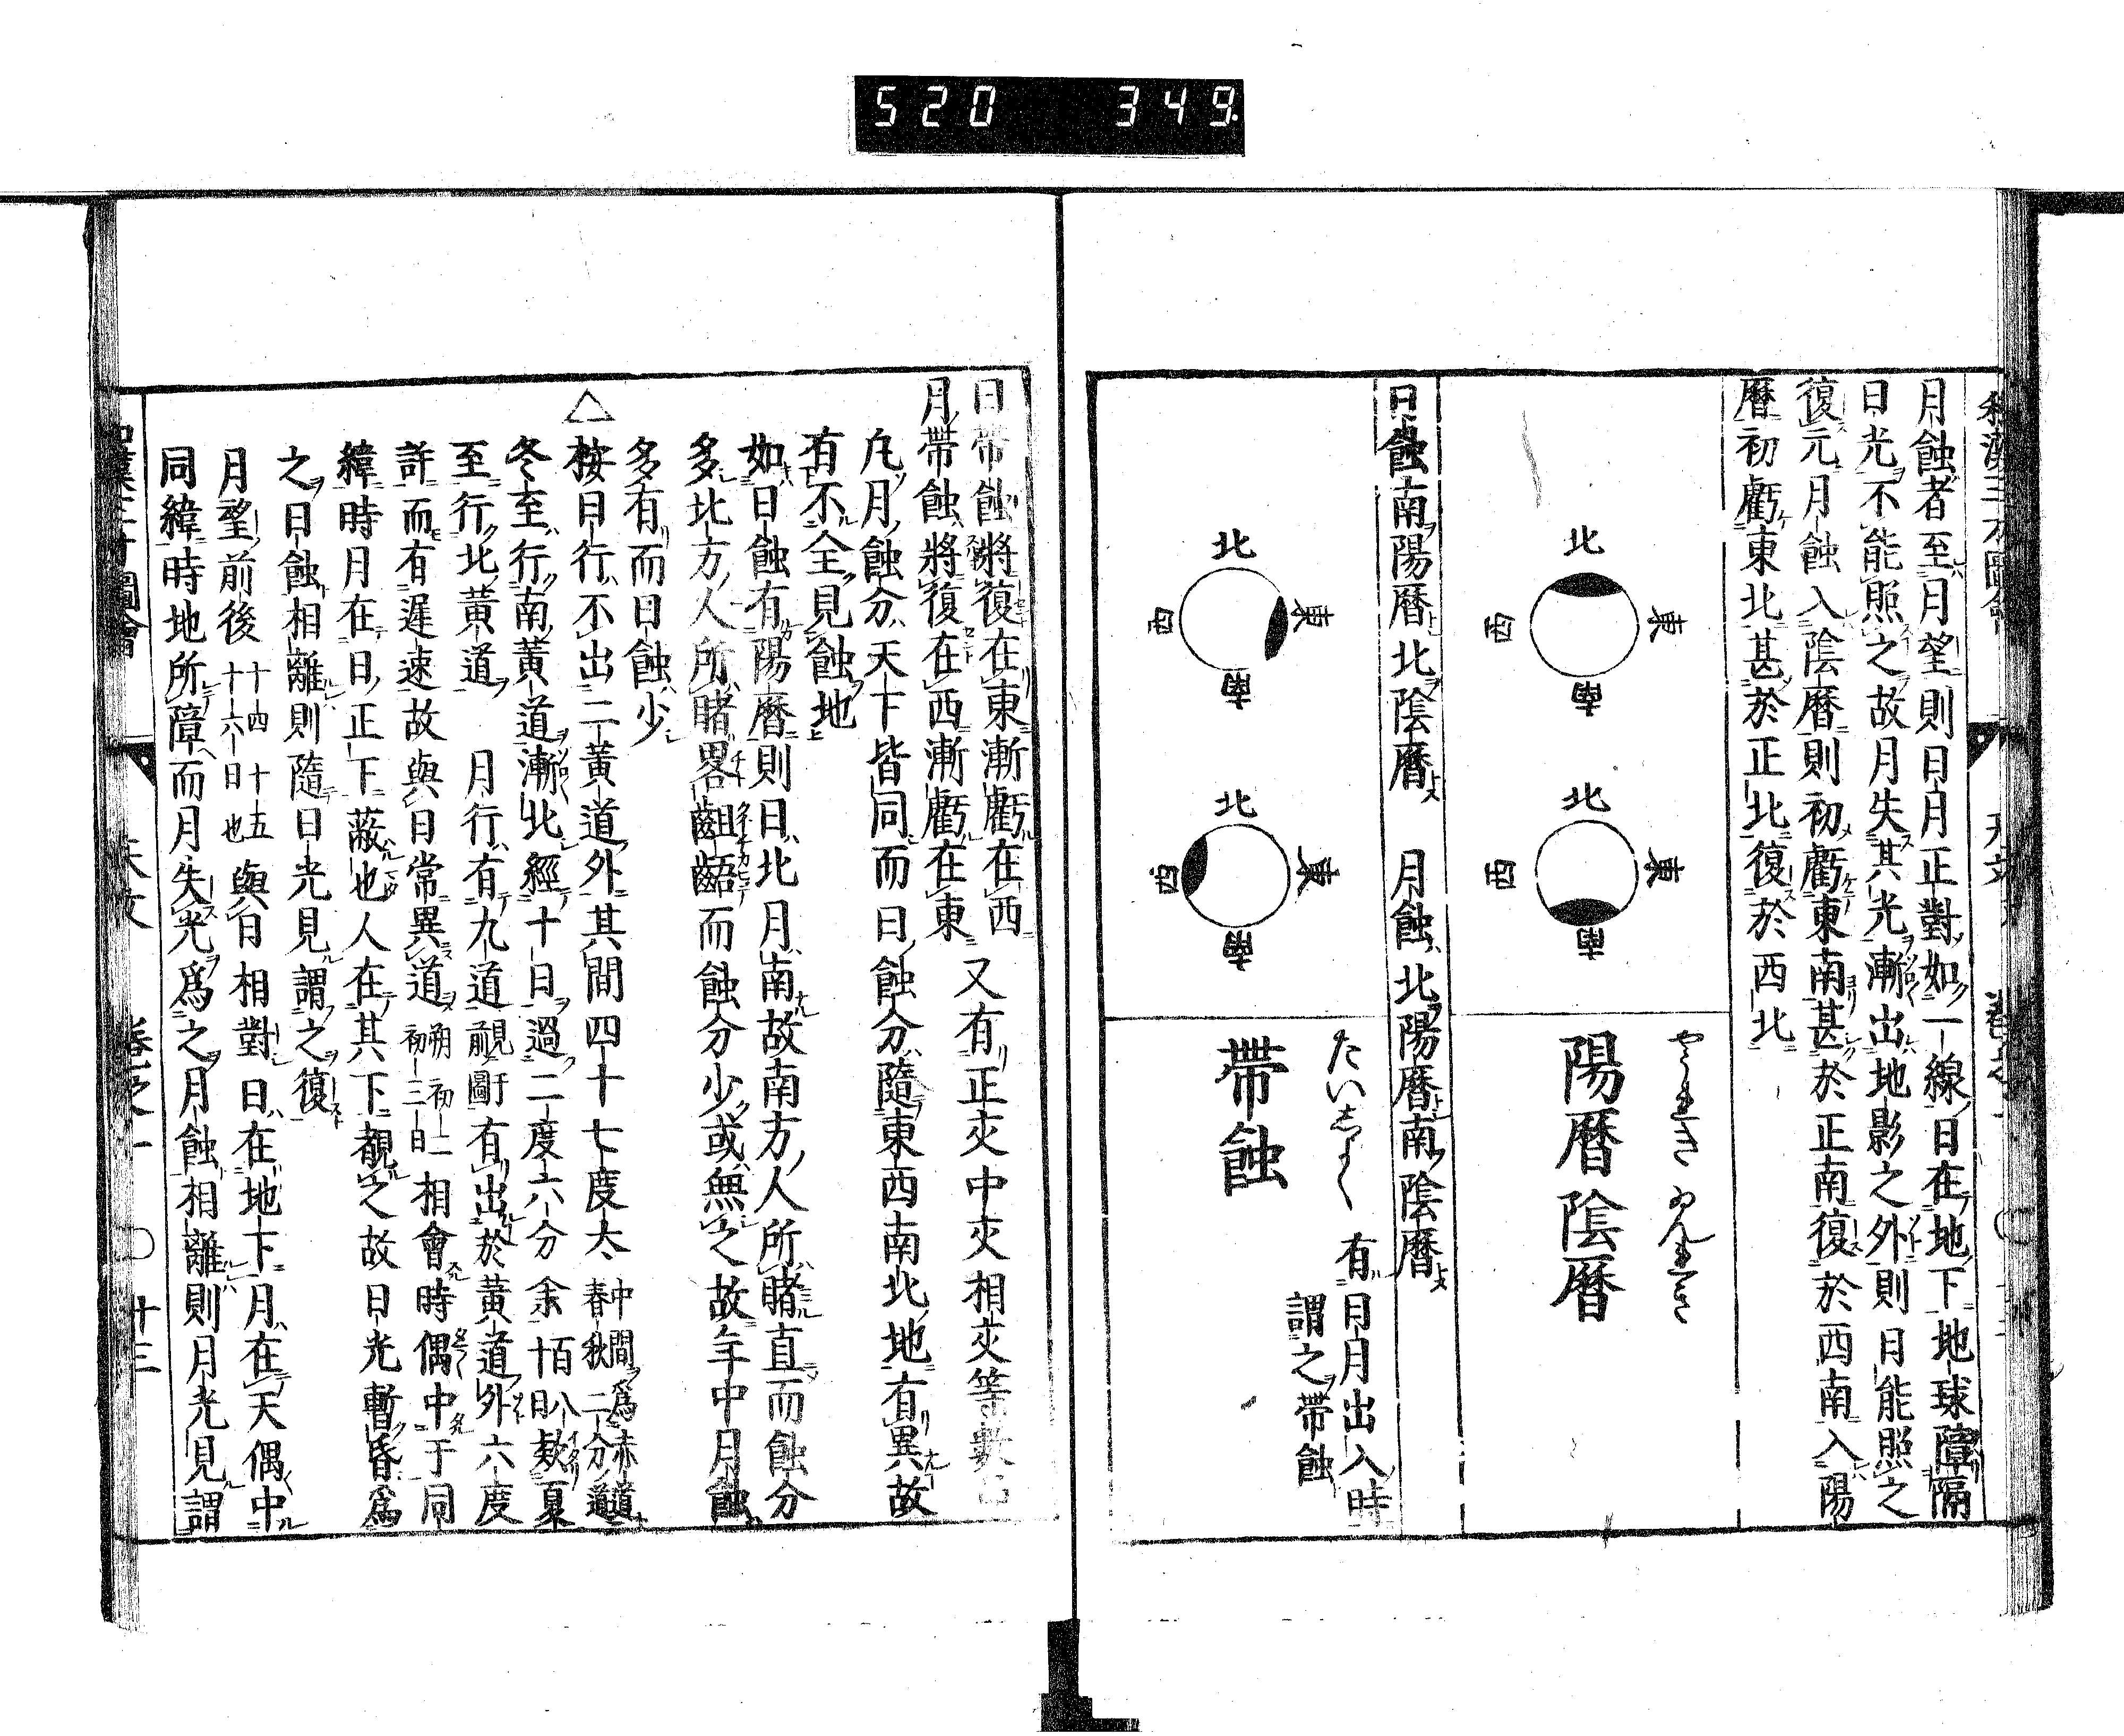 520 349.
月蝕者至月望則日月正對如一線日在地下地球障隔
日光不能照之故月失其光漸出地影之外則日能照之
復元月蝕入陰曆則初虧東南甚於正南復於西南入陽
曆初虧東北甚於正北復於西北
北
東
西
南
北
東
西
南
陽曆陰曆
日蝕南陽曆北陰曆 月蝕北陽曆南陰曆
北
東
西
南
北
東
西
南
たいしよく
帶蝕
有日月出入時
謂之帶蝕
日帶蝕將復在東漸虧在西 又有正夾中夾相夾等數
月帶蝕將復在西漸虧在東
凡月蝕分天下皆同而日蝕分隨東西南北地有異故
有不全見蝕地
如日蝕有陽曆則日北月南故南方人所睹直而蝕分
多北方人所睹畧齟齬而蝕分少或無之故年中月蝕
多有而日蝕少
△
桉日行不出二黃道外其間四十七度大 中間爲赤道
春秋二分道
冬至行南黃道漸北經十日過二度六分余 百八
十日 歟夏
至行北黃道 月行有九道 見于
前圖 有出於黃道外六度
許而有遲速故與日常異道 朔初二
初三日 相會時偶中于同
緯時月在日正下蔽也人在其下觀之故日光暫昏爲
之日蝕相離則隨日光見謂之復
月望前後 十四十五
十六日也 與日相對日在地下月在天偶中
同緯時地所障而月失光爲之月蝕相離則月光見謂
天文
卷之一
十三